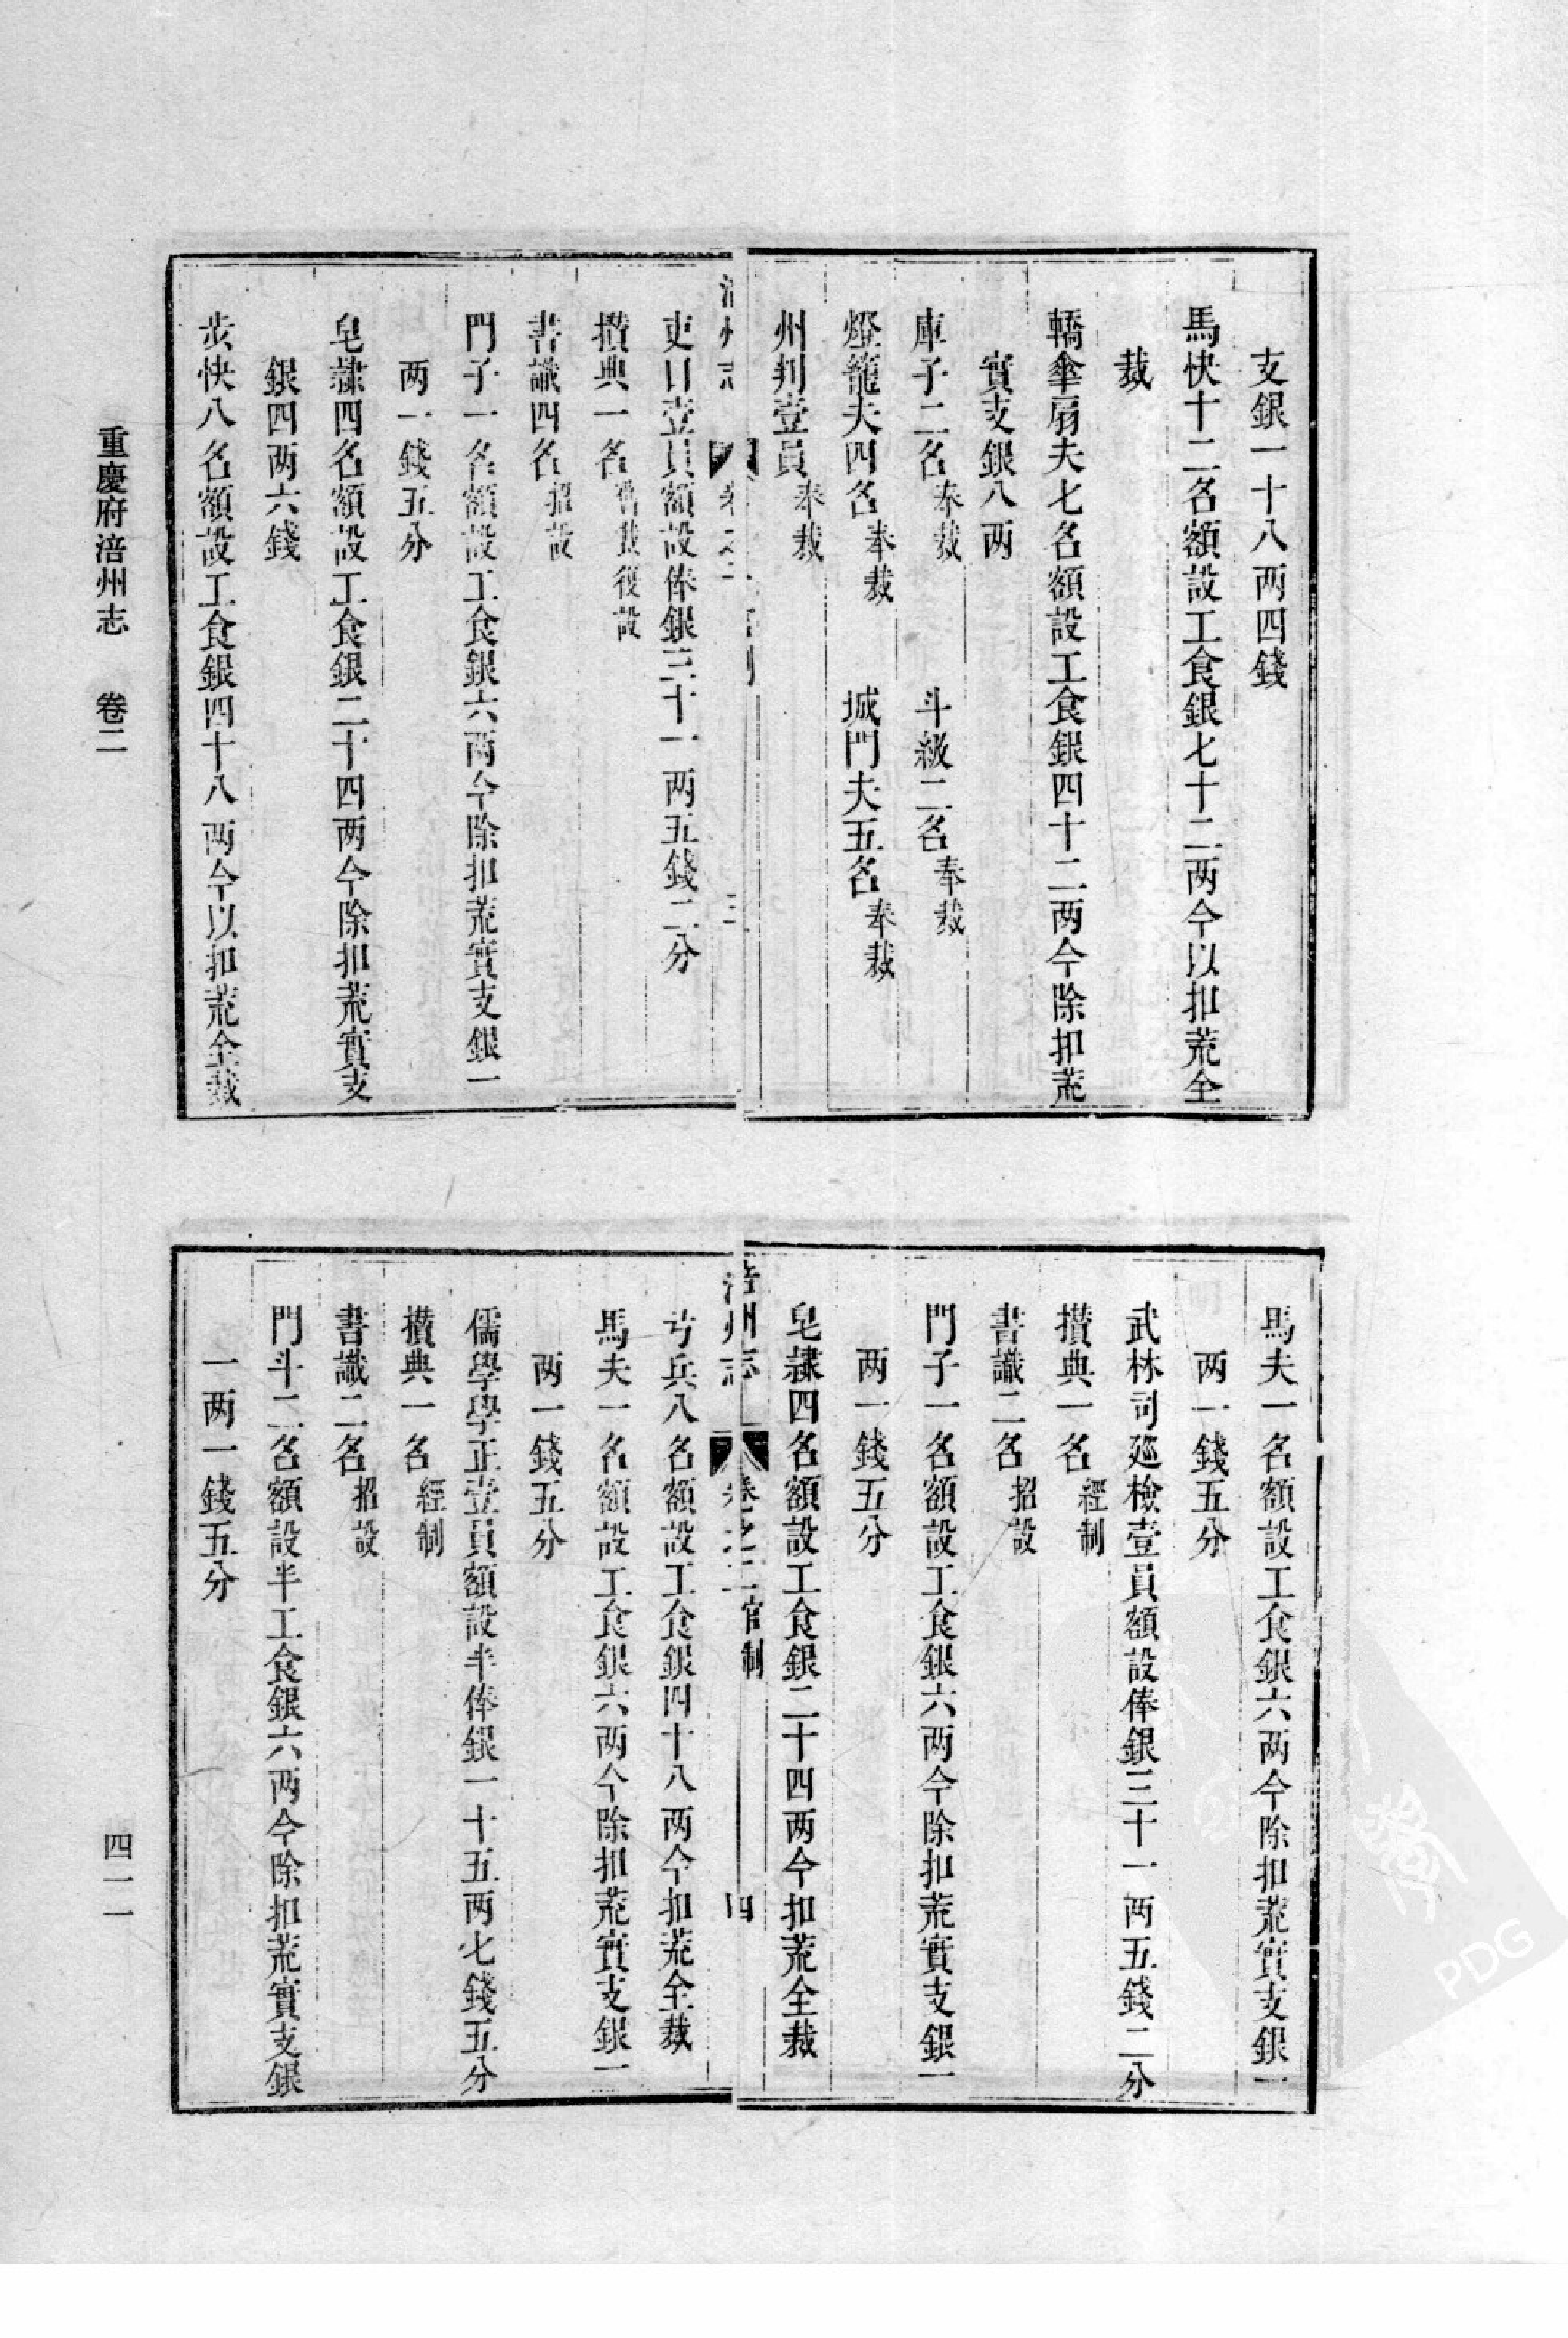 支銀一十八两四錢
馬快十二名額設工食銀七十二两今以扣荒全
裁
轎傘扇夫七名額設工食銀四十二两今除扣荒
實支銀八两
庫子二名奉裁 斗級二名奉裁
燈籠夫四名奉裁 城門夫五名奉裁
州判壹員奉裁
涪州志 卷之二 官制 三
吏目壹員額設俸銀三十一两五錢二分
攢典一名舊裁復設
書識四名招設
門子一名額設工食銀六两今除扣荒實支銀一
两一錢五分
皂隸四名額設工食銀二十四两今除扣荒實支
銀四两六錢
步快八名額設工食銀四十八两今以扣荒全裁
馬夫一名額設工食銀六两今除扣荒實支銀一
两一錢五分
武林司廵檢壹員額設俸銀三十一两五錢二分
攢典一名經制
書識二名招設
門子一名額設工食銀六两今除扣荒實支銀一
两一錢五分
皂隸四名額設工食銀二十四两今扣荒全裁
涪州志 卷之二 官制 四
弓兵八名額設工食銀四十八两今扣荒全裁
馬夫一名額設工食銀六两今除扣荒實支銀一
两一錢五分
儒學學正壹員額設半俸銀一十五两七錢五分
攢典一名經制
書識二名招設
門斗二名額設半工食銀六两今除扣荒實支銀
一两一錢五分
重慶府涪州志 卷二
四一一
PDG